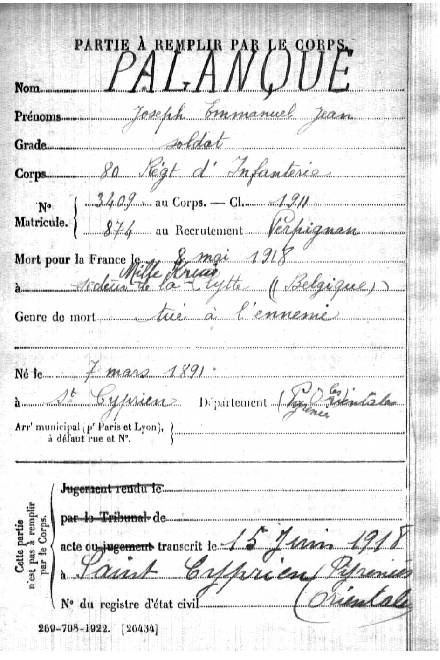 PARTIE À REMPLIR PAR LE CORPS.
Nom PALANQUE
Prénoms Joseph Emmanuel Jean
Grade soldat
Corps 80 Régt d'Infanterie
N° Matricule. { 3409 au Corps. — Cl. 1911
874 au Recrutement Perpignan
Mort pour la France le 8 mai 1918
Mille Kruis
à secteur de la Clytte (Belgique)
Genre de mort tué à l'ennemi
Né le 7 mars 1891
à St Cyprien Département (Pyrénées Orientales
Arrt municipal (pr Paris et Lyon), à défaut rue et N°. {
Cette partie n'est pas à remplir par le Corps.
Jugement rendu le
par le Tribunal de
acte ou jugement transcrit le 15 Juin 1918
à Saint Cyprien Pyrénées
N° du registre d'état civil (Orientales
269-708-1922. [26434]